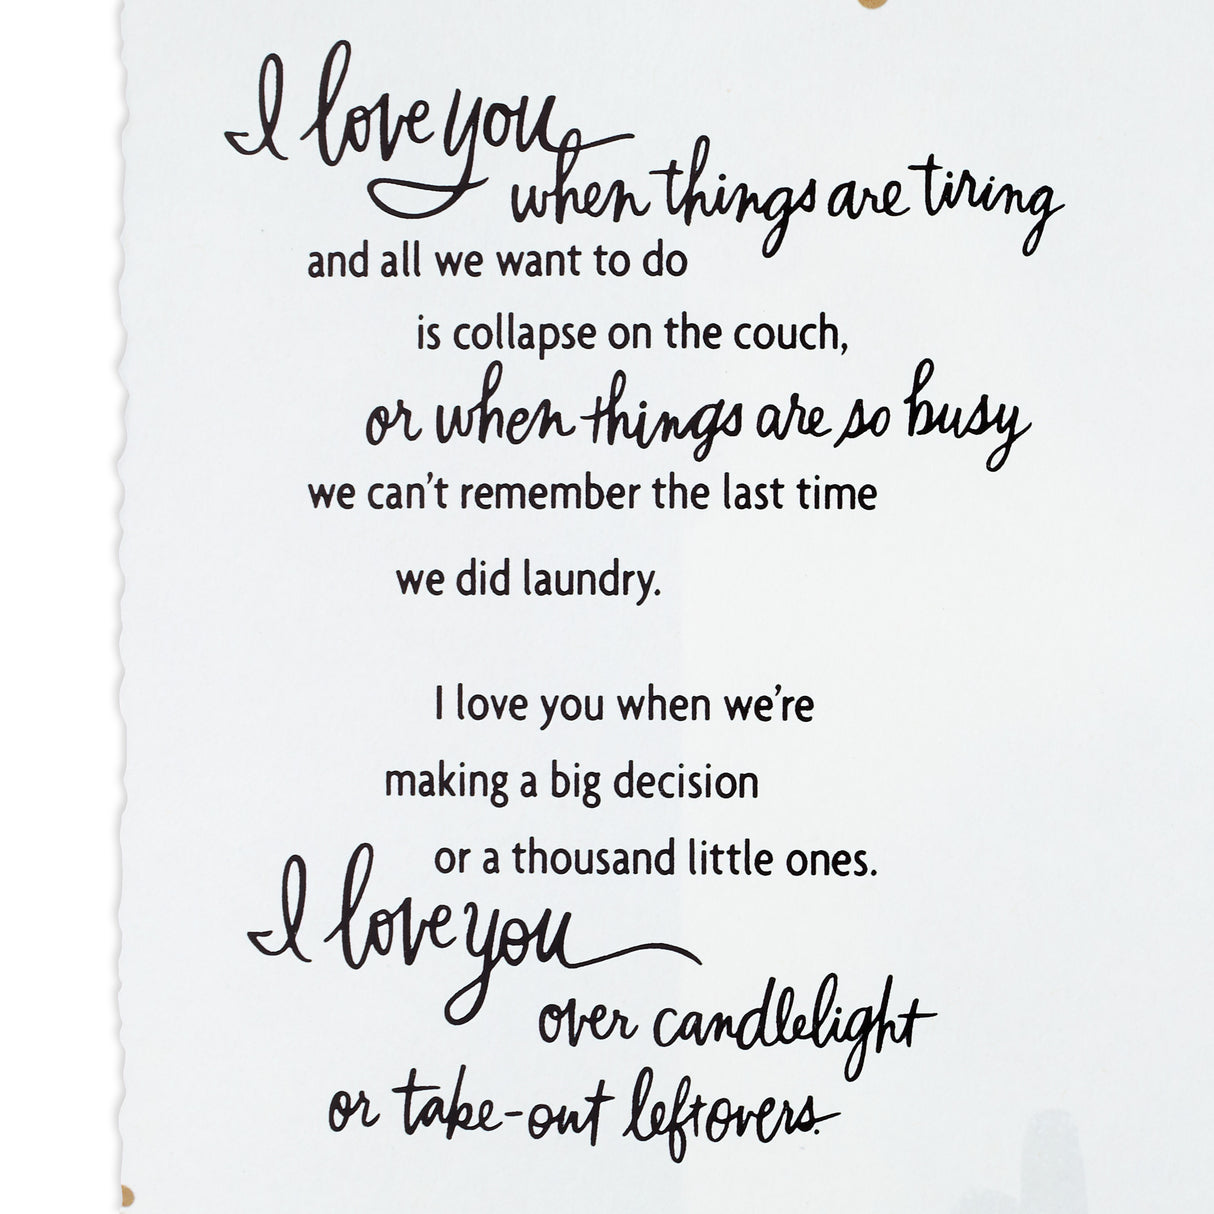 I love you
when things are tiring
and all we want to do
is collapse on the couch,
or when things are so busy
we can't remember the last time
we did laundry.
I love you when we're
making a big decision
or a thousand little ones.
I love you
over candlelight
or take-out leftovers.